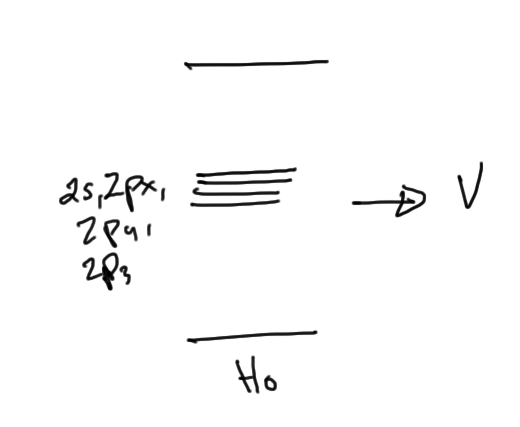 2s, 2px,
2py,
2p3
V
H0